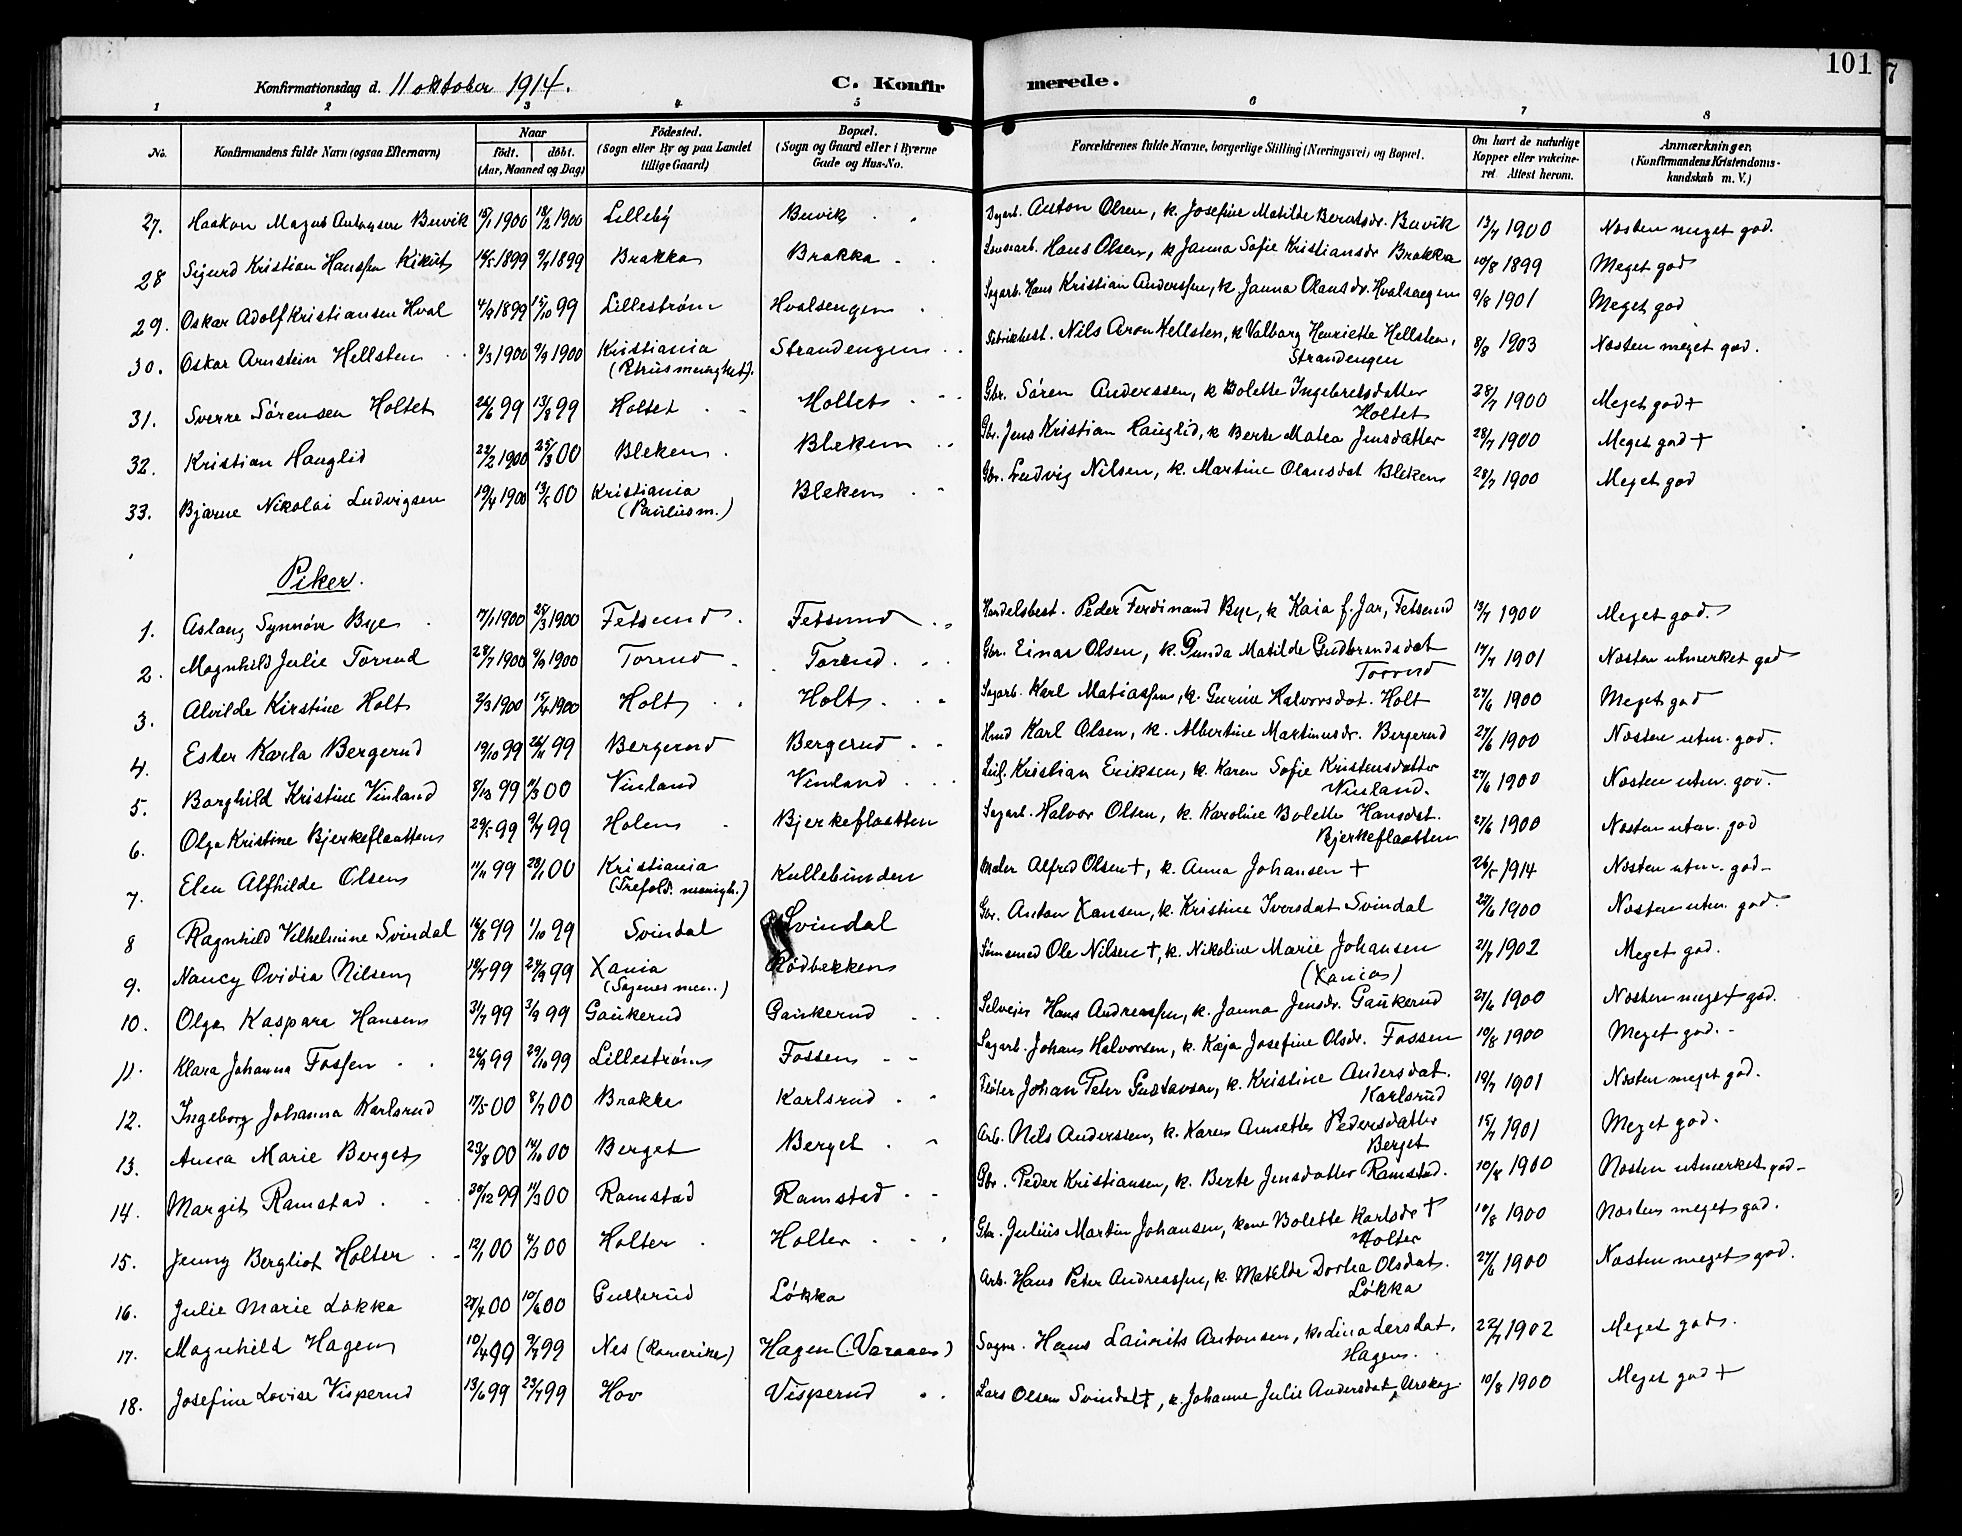 101
Konfirmationsdag d. 11 oktober 1914.
C. Konfirmerede.
1 2 3 4 5 6 7 8
No. Konfirmandens fulde Navn (ogsaa Efternavn) Naar født. døbt. (Aar, Maaned og Dag) Fødested. (Sogn eller By og paa Landet tillige Gaard) Bopæl. (Sogn og Gaard eller i Byerne Gade og Hus-No. Forældrenes fulde Navne, borgerlige Stilling (Næringsvei) og Bopæl. Om havt de naturlige Kopper eller vaksineret Attest herom. Anmærkninger. (Konfirmandens Kristendomskundskab m. V.)
27. Haakon Magnus Antonsen Buvik 15/1 1900 18/2 1900 Lilleby Buvik Dagarb. Anton Olsen, k. Josefine Matilde Berntsdr. Buvik 13/7 1900 Næsten meget god.
28 Sigurd Kristian Hanssen Kikut 1899 9/7 1899 Brakka Brakka Hans Olsen, k Janna Sofie Kristiansdr Brakka 10/8 1899 Meget god
29. Oskar Adolf Kristiansen Hval 4/9 1899 15/10 99 Lillestrøm Hvalsengen Sagarb. Hans Kristian Anderssen, k Janna Olausdr. Hvalsengen 9/8 1901 Meget god
30. Oskar Arnstein Hellsten 8/3 1900 9/9 1900 Kristiania Strandengen Fabrikbest. Nils Aron Hellsten, k Valborg Henriette Hellsten, 8/8 1903 Næsten meget god.
(Petrus menighet). Strandengen
31. Sverre Sørensen Holtet 26/6 99 13/8 99 Holtet Holtet Gbr. Søren Anderssen, k Bolette Ingebretsdatter 28/7 1900 Meget god +
Holtet
32. Kristian Hauglid 22/2 1900 25/3 00 Bleken Bleken Gbr. Jens Kristian Hauglid, k Berte Matea Jensdatter 28/7 1900 Meget god +
33. Bjarne Nikolai Ludvigsen 19/4 1900 13/5 00 Kristiania Bleken Gbr. Ludvig Nilsen, k. Martine Olausdat Bleken 28/7 1900 Meget god
(Paulus m.)
Piker.
1. Aslaug Synnøve Bye 17/1 1900 25/3 1900 Fetsund Fetsund Handelsbest. Peder Ferdinand Bye, k Kaia f. Jar, Fetsund 13/7 1900 Meget god.
2. Magnhild Julie Torrud 28/7 1900 9/9 1900 Torrud Torrud Gbr. Einar Olsen, k. Gunda Matilde Gudbrandsdat 17/7 1901 Næsten utmerket god
Torrud
3. Alvilde Kirstine Holt 2/3 1900 15/4 1900 Holt Holt Sagarb. Karl Matiassen, k. Gurine Halvorsdat. Holt 27/6 1900 Meget god
4. Ester Karla Bergerud 19/10 99 26/11 99 Bergerud Bergerud Karl Olsen, k. Albertine Martinusdr. Bergerud 27/6 1900 Næsten utm. god.
5. Borghild Kristine Vinland 8/12 99 11/3 00 Vinland Vinland Leil. Kristian Eriksen, k. Karen Sofie Kristensdatter 27/6 1900 Næsten utm. god.
Vinland.
6. Olga Kristine Bjerkeflaatten 29/5 99 9/7 99 Holen Bjerkeflaatten Sagarb. Halvor Olsen, k. Karoline Bolette Hansdat. 27/6 1900 Næsten utm. god
Bjerkeflaatten
7. Elen Alfhilde Olsen 11/11 99 28/1 00 Kristiania Kullebunden Maler Alfred Olsen +, k. Anna Johansen + 26/5 1914 Næsten utm. god
(Trefold. menigh.)
8 Ragnhild Vilhelmine Svindal 16/8 99 1/10 99 Svindal Svindal Gbr. Anton Hansen, k. Kristine Iversdat Svindal 27/6 1900 Næsten utm. god.
9. Nancy Ovidia Nilsen 18/7 99 24/9 99 Xania Rødbekken Ole Nilsen +, k. Nikoline Marie Johansen 21/7 1902 Meget god.
(Sagenes men..) (Xania)
10. Olga Kaspara Hansen 31/7 99 3/9 99 Gaukerud Gaukerud Selveier Hans Andreassen, k. Janna Jensdr. Gaukerud 27/6 1900 Næsten meget god.
11. Klara Johanna Fossen 26/9 99 29/10 99 Lillestrøm Fossen Sagarb. Johans Halvorsen, k. Kaja Josefine Olsdr. Fossen 10/8 1900 Meget god.
12. Ingeborg Johanna Karlsrud 17/5 00 8/7 00 Brakke Karlsrud Fløter Johan Peter Gustavsen, k. Kristine Andersdat. 19/7 1901 Næsten meget god.
Karlsrud
13. Anna Marie Berget 23/8 00 14/10 00 Berget Berget Arb. Nils Anderssen, k. Karen Annette Pedersdatter 15/7 1901 Meget god.
Berget
14. Margit Ramstad 30/12 99 11/3 00 Ramstad Ramstad Gbr. Peder Kristiansen, k. Berte Jensdatter Ramstad. 10/8 1900 Næsten utmerket god
15. Jenny Bergliot Holter 12/1 00 4/3 00 Holter Holter Gbr. Julius Martin Johansen, kone Bolette Karlsdr + 10/8 1900 Næsten meget god.
Holter
16. Julie Marie Løkka 27/4 00 10/6 00 Gullerud Løkka Arb. Hans Peter Andreassen, k. Matilde Dorthea Olsdat. 27/6 1900 Næsten meget god.
Løkka
17. Magnhild Hagen 10/4 99 9/7 99 Nes (Romerike) Hagen (Varaaen) Sagm. Hans Laurits Antonsen, k. Lina Larsdat. 22/7 1902 Meget god.
Hagen.
18. Josefine Lovise Visperud 13/6 99 23/7 99 Hov Visperud Lars Olsen Svindal +, k. Johanne Julie Andersdat, Urskog. 10/8 1900 Meget god +